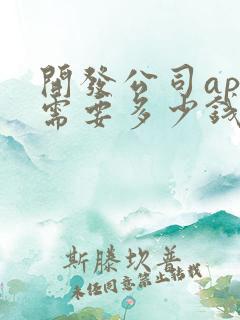 開發公司ap
需要多少錢
斯滕坎普
未经同意禁止转载